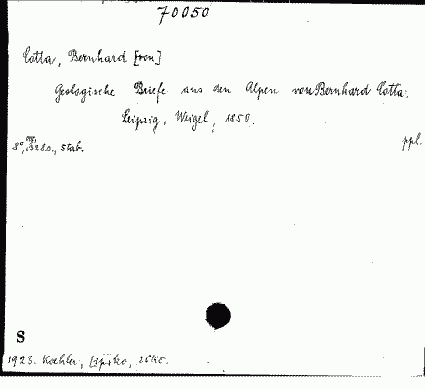 70050
Cotta, Bernhard [von]
Geologische Briefe aus den Alpen von Bernhard Cotta.
Leipzig, Weigel, 1850.
8°, 328 s., 5 tab.
ppl.
S
1923. Koehler, Lipsko, 26 Kč.